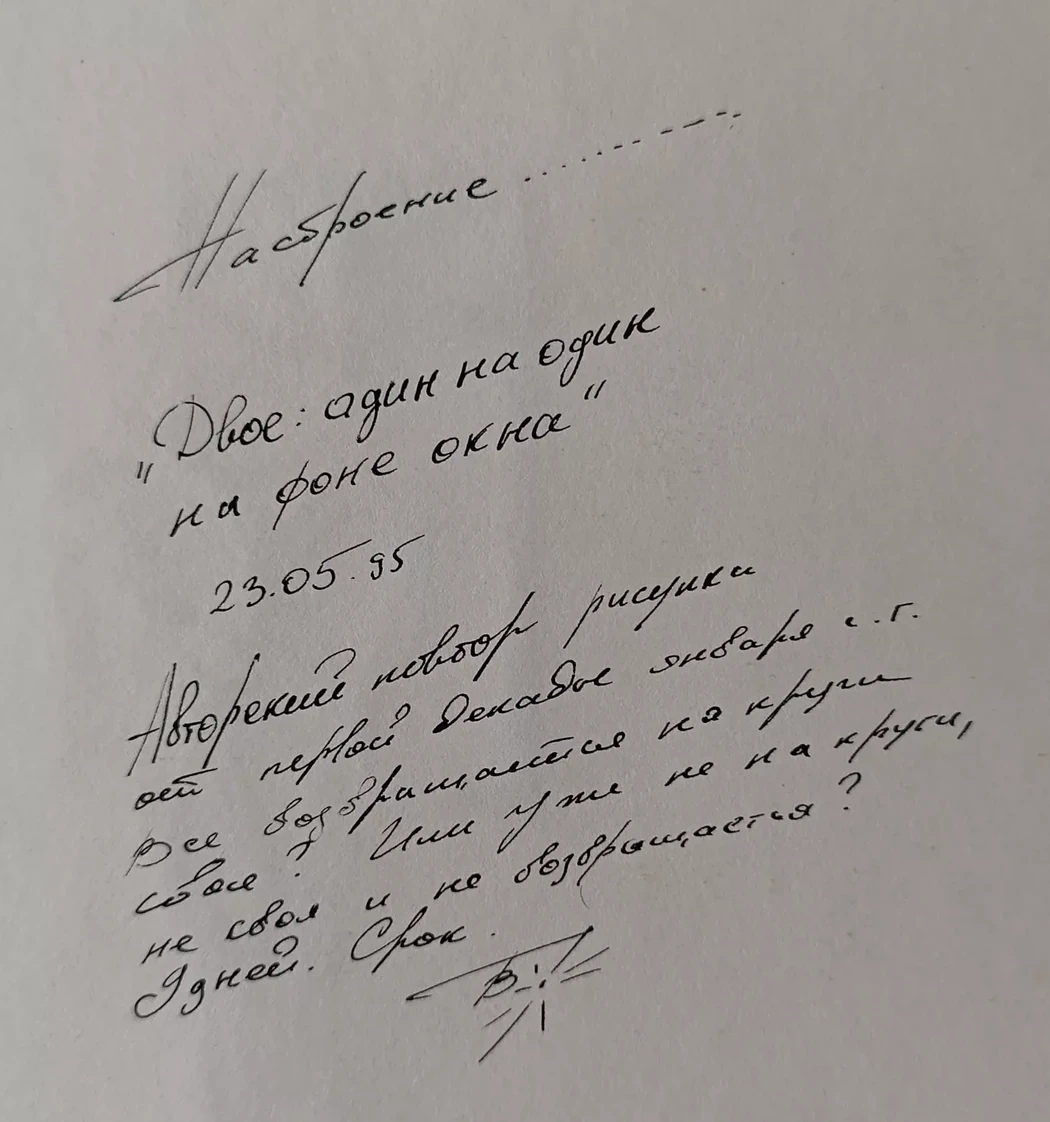 Настроение ..........
"Двое: один на один
на фоне окна"
23.05.95
Авторский повтор рисунка
от первой декады января с.г.
Все возвращается на круги
своя? Или уже не на круги,
не своя и не возвращается?
9 дней. Срок.